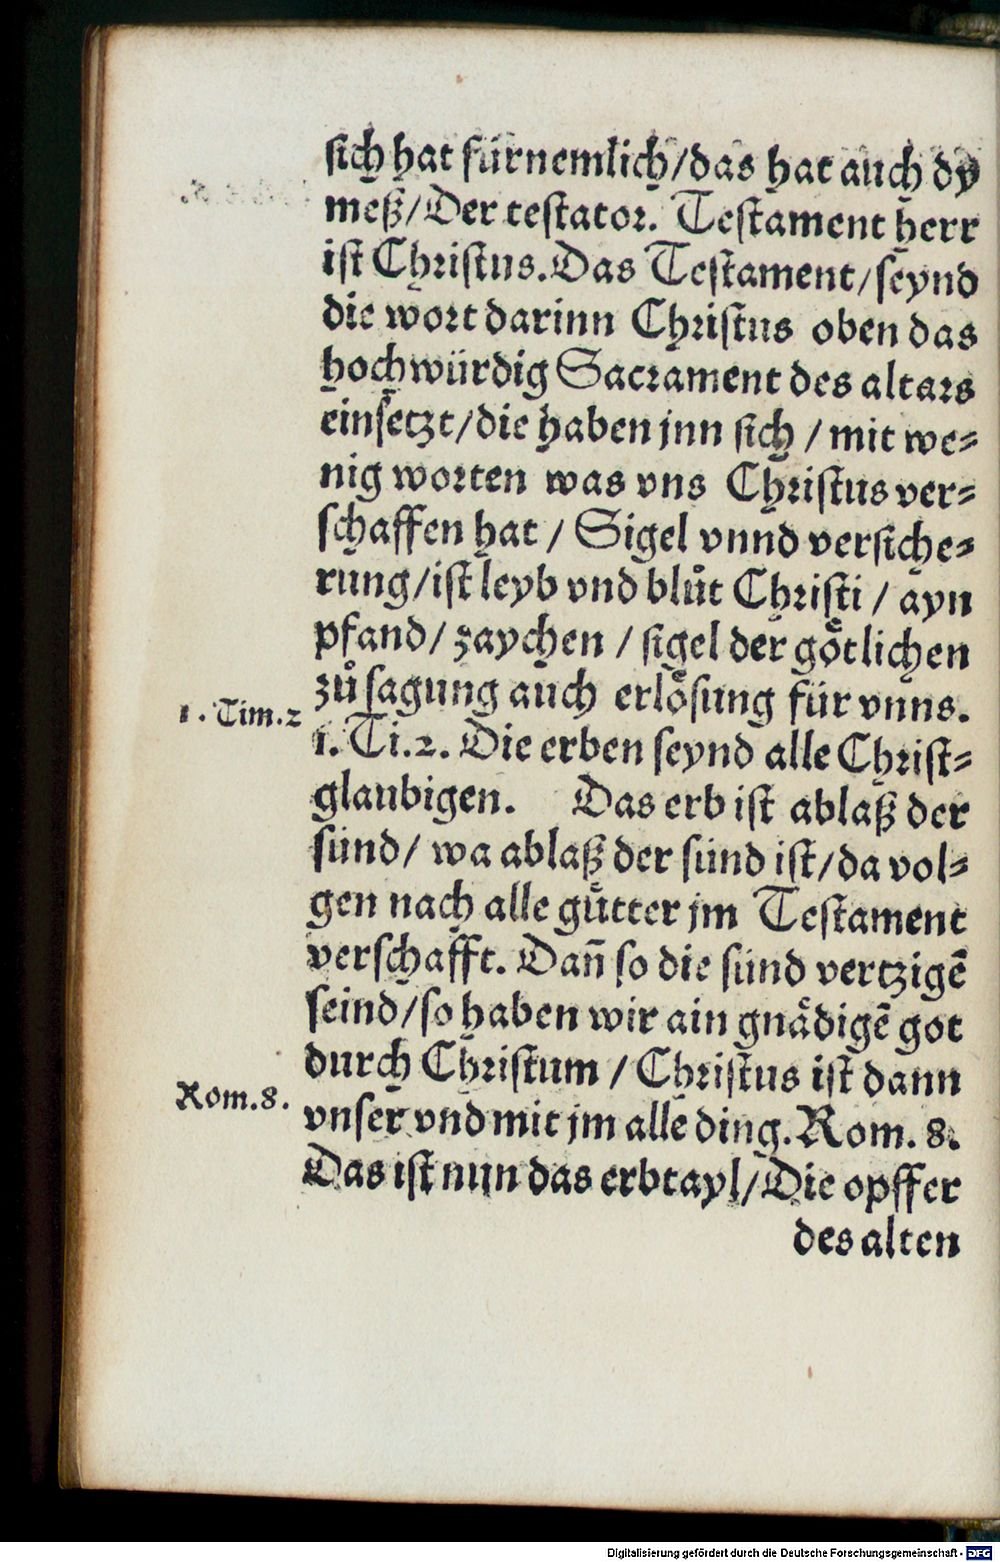 sich hat fürnemlich/das hat auch dy
meß/Der testator. Testament herr
ist Christus. Das Testament/seynd
die wort darinn Christus oben das
hochwürdig Sacrament des altars
einsetzt/die haben jnn sich / mit we⸗
nig worten was vns Christus ver⸗
schaffen hat / Sigel vnnd versiche⸗
rung/ist leyb vnd blůt Christi / ayn
pfand/ zaychen / sigel der goͤtlichen
zůsagung auch erloͤsung für vnns.
1. Tim.2
1. Ti.2. Die erben seynd alle Christ⸗
glaubigen. Das erb ist ablaß der
sünd/ wa ablaß der sünd ist/da vol⸗
gen nach alle guͤtter jm Testament
verschafft. Dañ so die sünd vertzigẽ
seind/so haben wir ain gnaͤdigẽ got
durch Christum / Christus ist dann
Rom.8.
vnser vnd mit jm alle ding. Rom. 8.
Das ist nun das erbtayl/Die opffer
des alten
Digitalisierung gefördert durch die Deutsche Forschungsgemeinschaft - DFG